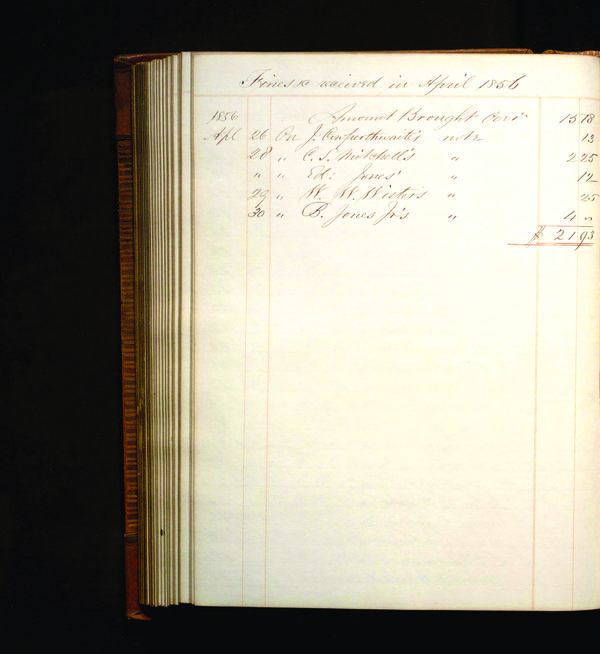 Fines received in April 1856
1856 Amount Brought Over 15 18
Apl 26 On J. Cowperthwaite's note 13
28 " C. S. Mitchell's " 2 25
" " Ed: Jones' " 12
29 " W. W. Wister's " 25
30 " B. Jones Jr's " 4 "
$ 21 93